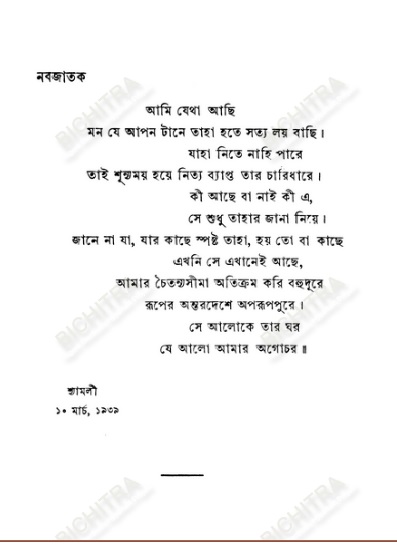 নবজাতক
আমি যেথা আছি
মন যে আপন টানে তাহা হতে সত্য লয় বাছি।
যাহা নিতে নাহি পারে
তাই শূন্যময় হয়ে নিত্য ব্যাপ্ত তার চারিধারে।
কী আছে বা নাই কী এ,
সে শুধু তাহার জানা নিয়ে।
জানে না যা, যার কাছে স্পষ্ট তাহা, হয় তো বা কাছে
এখনি সে এখানেই আছে,
আমার চৈতন্যসীমা অতিক্রম করি বহুদূরে
রূপের অন্তরদেশে অপরূপপুরে।
সে আলোকে তার ঘর
যে আলো আমার অগোচর॥
শ্যামলী
১০ মার্চ, ১৯৩৯
BICHITRA
BICHITRA
BICHITRA
BICHITRA
BICHITRA
BICHITRA
BICHITRA
BICHITRA